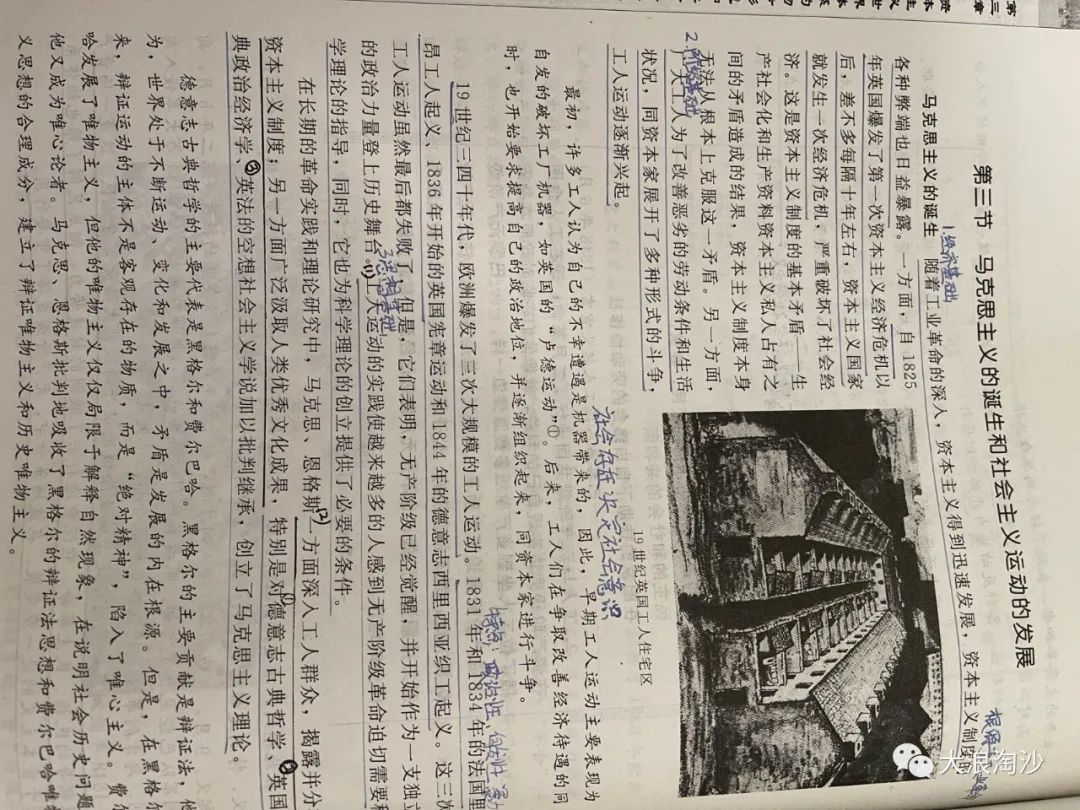 第三节 马克思主义的诞生和社会主义运动的发展
1.经济基础
马克思主义的诞生 随着工业革命的深入，资本主义得到迅速发展，资本主义制度
各种弊端也日益暴露。一方面，自1825
年英国爆发了第一次资本主义经济危机以
后，差不多每隔十年左右，资本主义国家
就发生一次经济危机，严重破坏了社会经
济。这是资本主义制度的基本矛盾——生
产社会化和生产资料资本主义私人占有之
间的矛盾造成的结果，资本主义制度本身
无法从根本上克服这一矛盾。另一方面，
2.阶级基础
广大工人为了改善恶劣的劳动条件和生活
状况，同资本家展开了多种形式的斗争，
工人运动逐渐兴起。
19世纪英国工人住宅区
社会存在决定社会意识
最初，许多工人认为自己的不幸遭遇是机器带来的，因此，早期工人运动主要表现为
自发的破坏工厂机器，如英国的“卢德运动”①。后来，工人们在争取改善经济待遇的同
时，也开始要求提高自己的政治地位，并逐渐组织起来，同资本家进行斗争。
特点：政治性
19世纪三四十年代，欧洲爆发了三次大规模的工人运动。1831年和1834年的法国里
昂工人起义、1836年开始的英国宪章运动和1844年的德意志西里西亚织工起义。这三次
工人运动虽然最后都失败了，但是，它们表明，无产阶级已经觉醒，并开始作为一支独立
3.思想基础
的政治力量登上历史舞台。工人运动的实践使越来越多的人感到无产阶级革命迫切需要科
学理论的指导，同时，它也为科学理论的创立提供了必要的条件。
在长期的革命实践和理论研究中，马克思、恩格斯一方面深入工人群众，揭露并分
资本主义制度；另一方面广泛汲取人类优秀文化成果，特别是对①德意志古典哲学、②英国
典政治经济学、③英法的空想社会主义学说加以批判继承，创立了马克思主义理论。
德意志古典哲学的主要代表是黑格尔和费尔巴哈。黑格尔的主要贡献是辩证法，他
为，世界处于不断运动、变化和发展之中，矛盾是发展的内在根源。但是，在黑格尔
来，辩证运动的主体不是客观存在的物质，而是“绝对精神”，陷入了唯心主义。费尔
哈发展了唯物主义，但他的唯物主义仅仅局限于解释自然现象，在说明社会历史问题
他又成为唯心论者。马克思、恩格斯批判地吸收了黑格尔的辩证法思想和费尔巴哈唯物
义思想的合理成分，建立了辩证唯物主义和历史唯物主义。
大浪淘沙